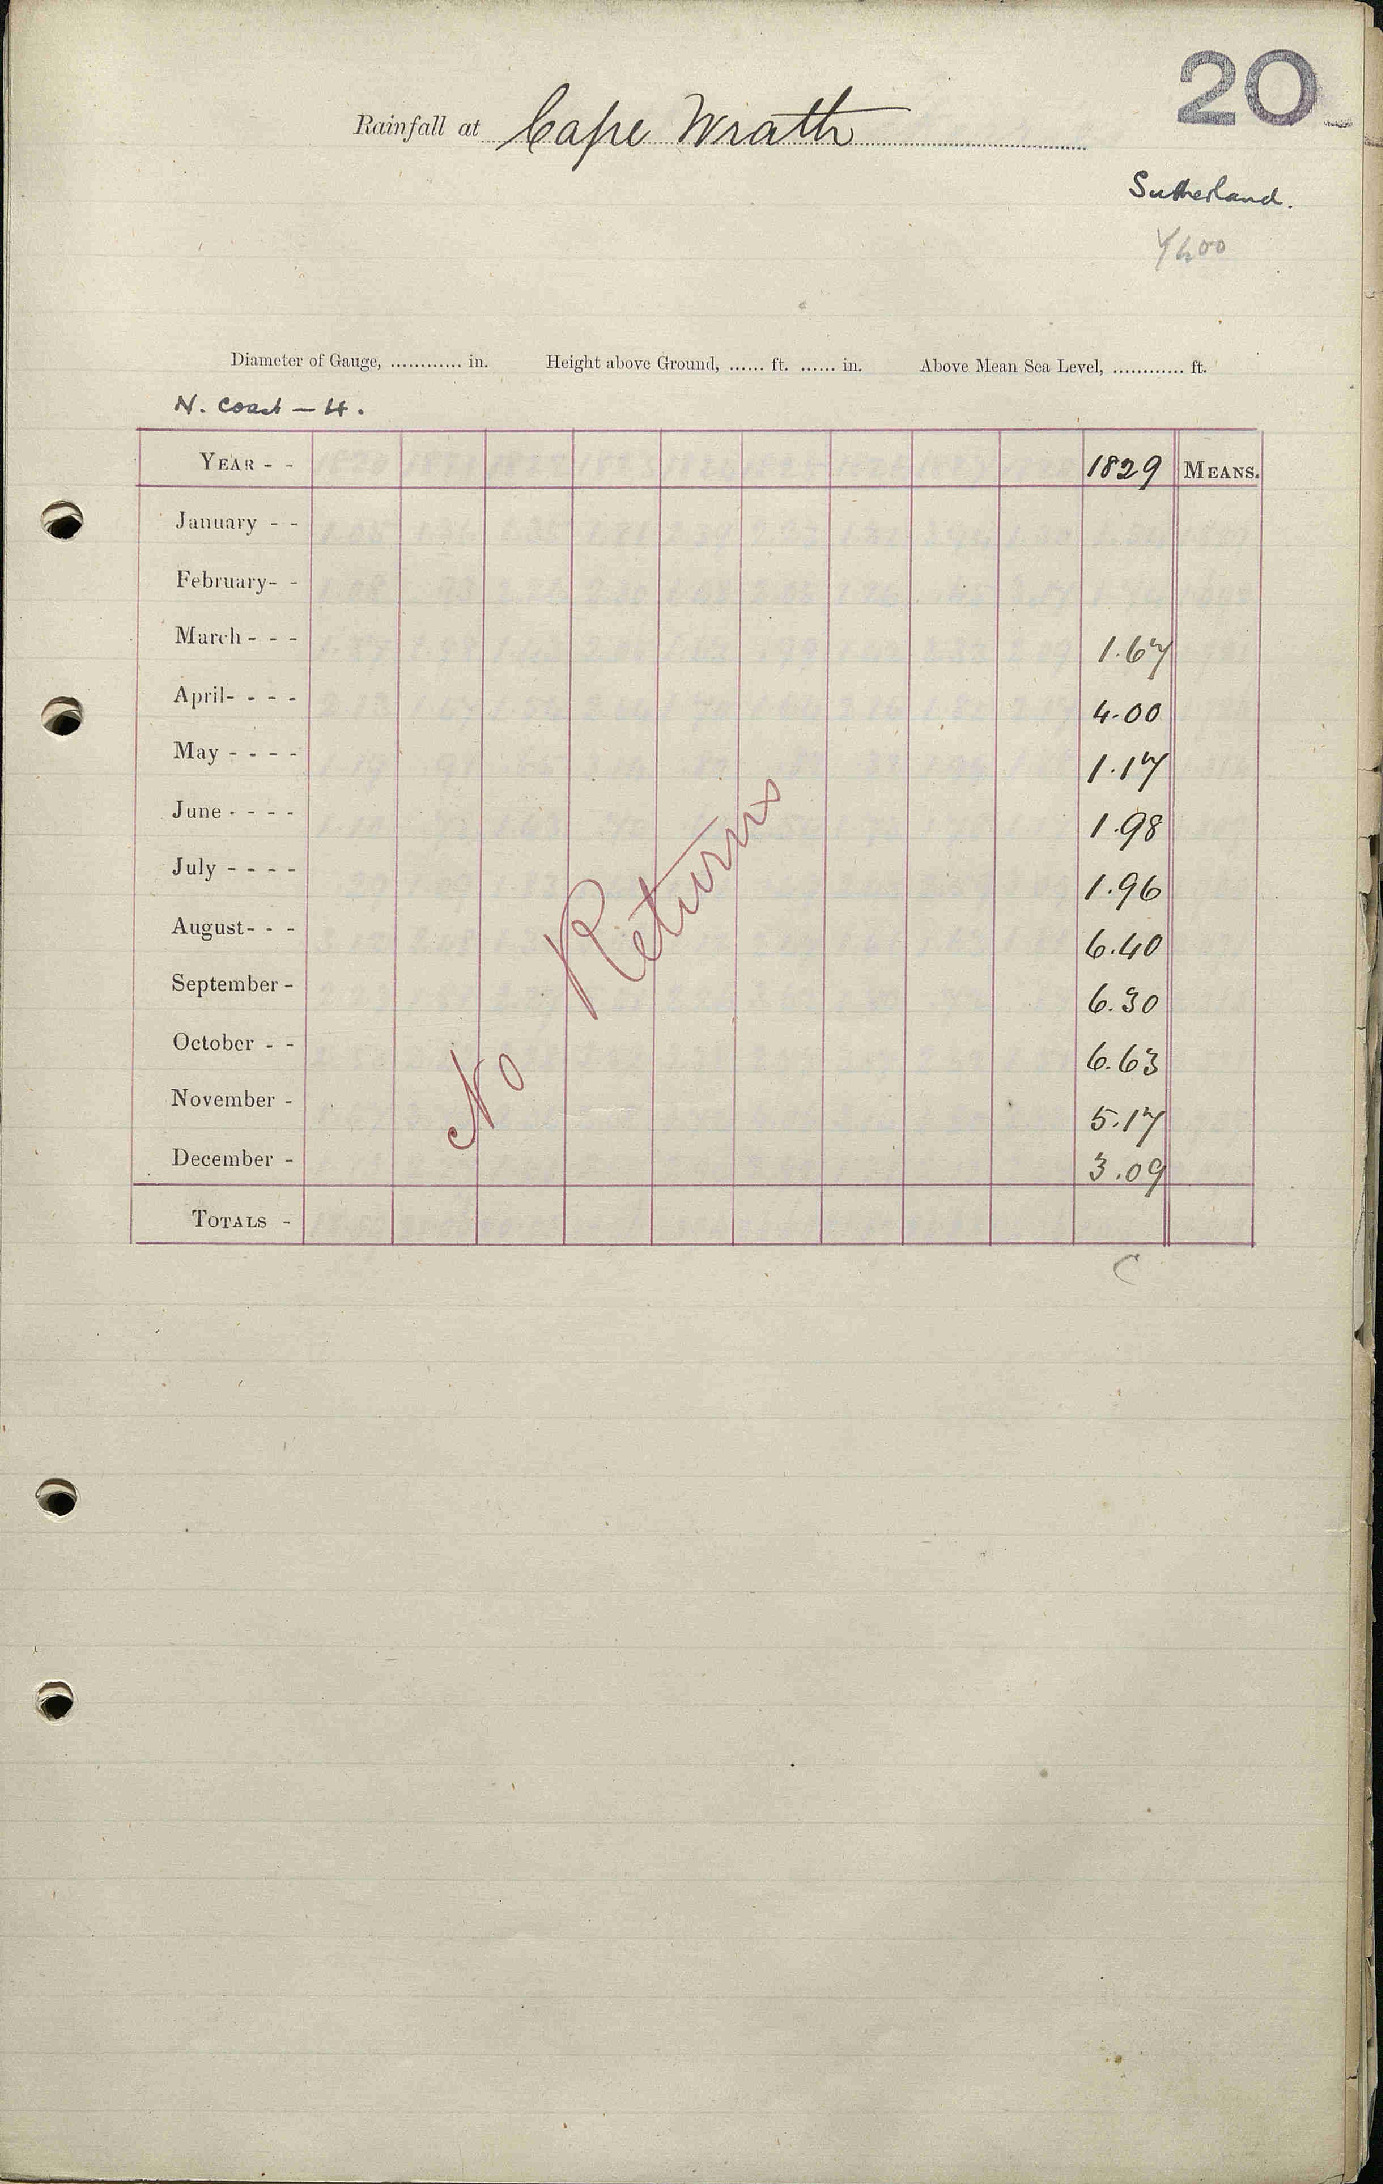 20
Rainfall at Cape Wrath
Sutherland.
Diameter of Gauge, ............ in. Height above Ground, ...... ft. ...... in. Above Mean Sea Level, ............ ft.
N. Coast - 4.
YEAR - - 1829 MEANS.
January - -
February- -
March - - - 1.67
April- - - - 4.00
May - - - - 1.17
June - - - - 1.98
July - - - - 1.96
August- - - 6.40
September - 6.30
October - - 6.63
November - 5.17
December - 3.09
TOTALS -
No Returns
C